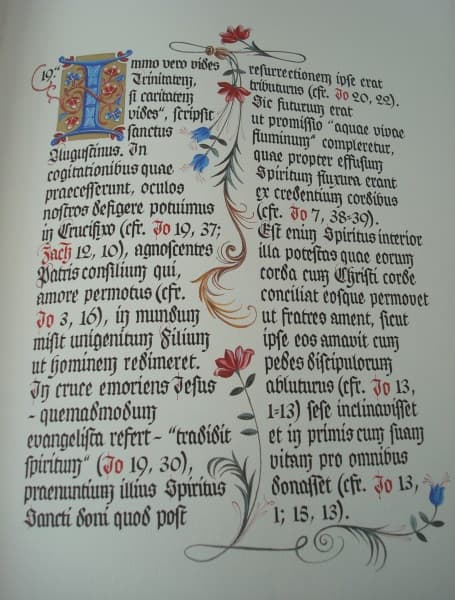 19.
Immo vero vides
Trinitatem,
si caritatem
vides", scripsit
sanctus
Augustinus. In
cogitationibus quae
praecesserunt, oculos
nostros defigere potuimus
in Crucifixo (cfr. Jo 19, 37;
Zach 12, 10), agnoscentes
Patris consilium qui,
amore permotus (cfr.
Jo 3, 16), in mundum
misit unigenitum Filium
ut hominem redimeret.
In cruce emoriens Jesus
- quemadmodum
evangelista refert - "tradidit
spiritum" (Jo 19, 30),
praenuntium illius Spiritus
Sancti doni quod post
resurrectionem ipse erat
tributurus (cfr. Jo 20, 22).
Sic futurum erat
ut promissio "aquae vivae
fluminum" compleretur,
quae propter effusum
Spiritum fluxura erant
ex credentium cordibus
(cfr. Jo 7, 38-39).
Est enim Spiritus interior
illa potestas quae eorum
corda cum Christi corde
conciliat eosque permovet
ut fratres ament, sicut
ipse eos amavit cum
pedes discipulorum
abluturus (cfr. Jo 13,
1-13) sese inclinavisset
et in primis cum suam
vitam pro omnibus
donasset (cfr. Jo 13,
1; 15, 13).